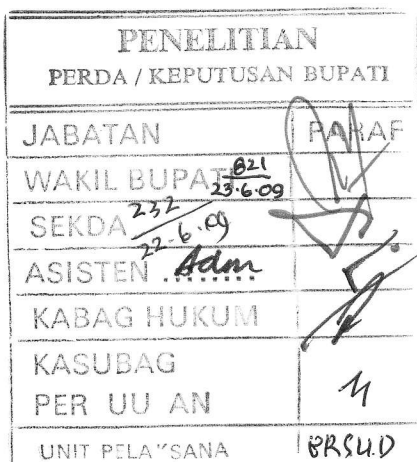 PENELITIAN
PERDA / KEPUTUSAN BUPATI
JABATAN PARAF
WAKIL BUPATI 821
23-6-09
SEKDA 232
22-6-09
ASISTEN ........ Adm
KABAG HUKUM
KASUBAG
PER UU AN
UNIT PELAKSANA BRSUD